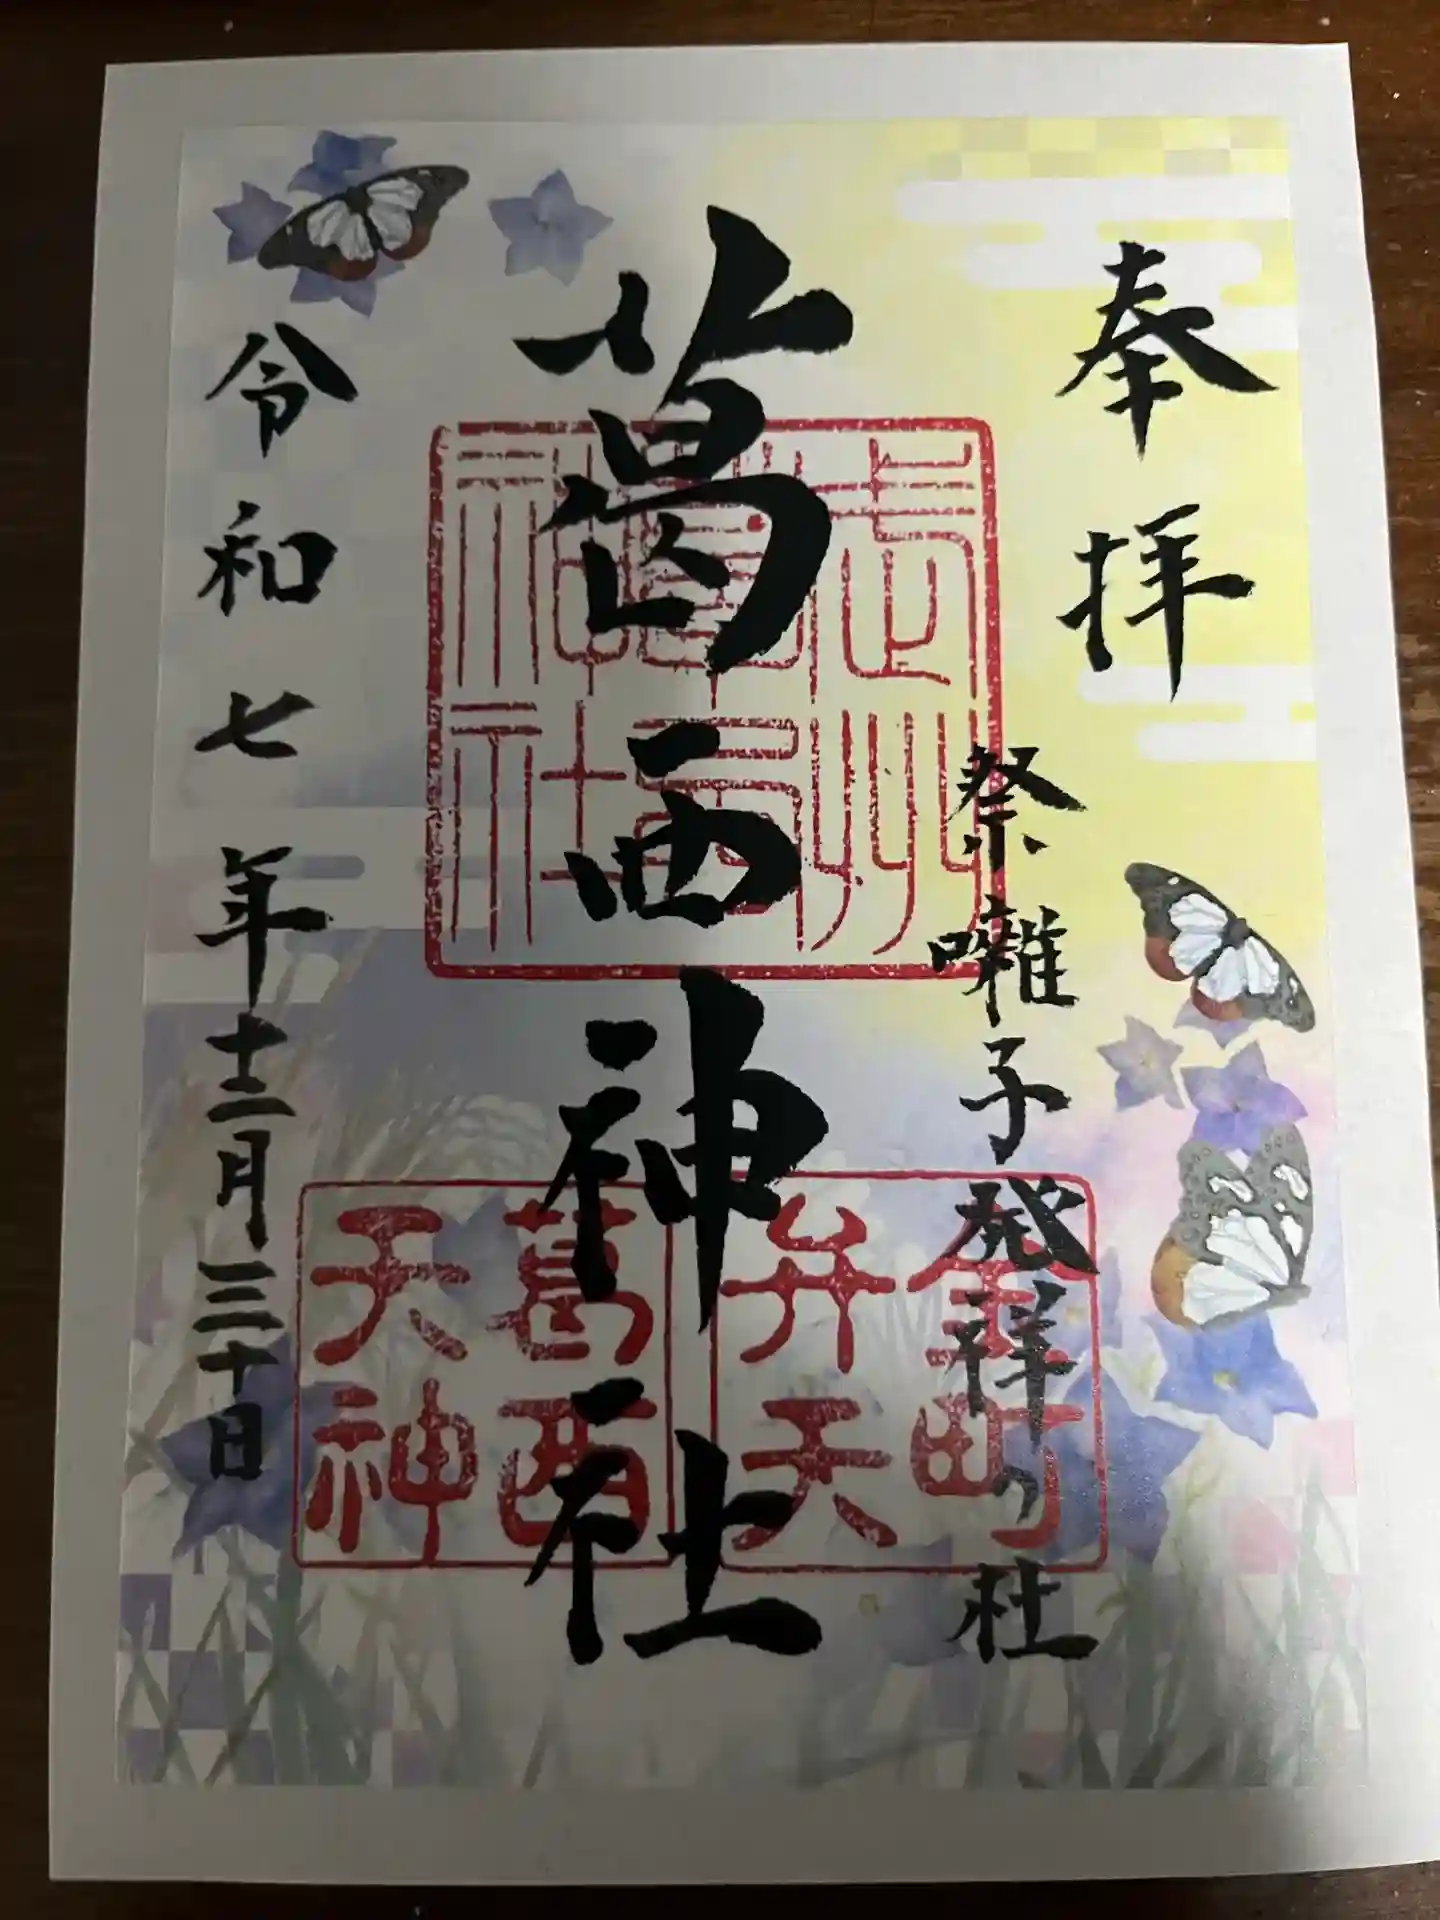 奉拝
祭囃子発祥の社
葛西神社
令和七年十二月三十日
武州
葛西
神社
金町
弁天
葛西
天神